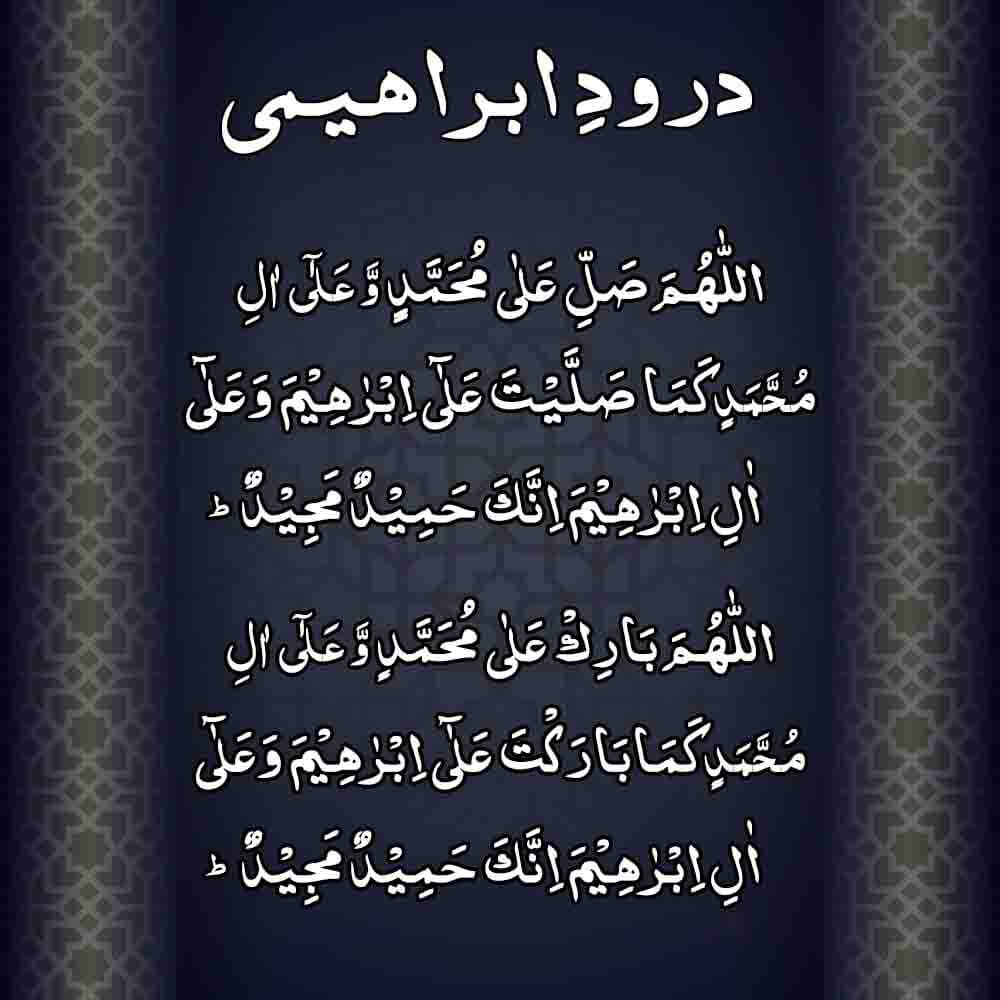 درودِ ابراہیمی
اللّٰهُمَ صَلِّ عَلٰی مُحَمَّدٍ وَّ عَلٰٓی اٰلِ
مُحَمَّدٍ کَمَا صَلَّیْتَ عَلٰٓی اِبْرٰهِیْمَ وَ عَلٰٓی
اٰلِ اِبْرٰهِیْمَ اِنَّكَ حَمِیْدٌ مَجِیْدٌ ؕ
اللّٰهُمَ بَارِكْ عَلٰی مُحَمَّدٍ وَّ عَلٰٓی اٰلِ
مُحَمَّدٍ کَمَا بَارَکْتَ عَلٰٓی اِبْرٰهِیْمَ وَ عَلٰٓی
اٰلِ اِبْرٰهِیْمَ اِنَّكَ حَمِیْدٌ مَجِیْدٌ ؕ